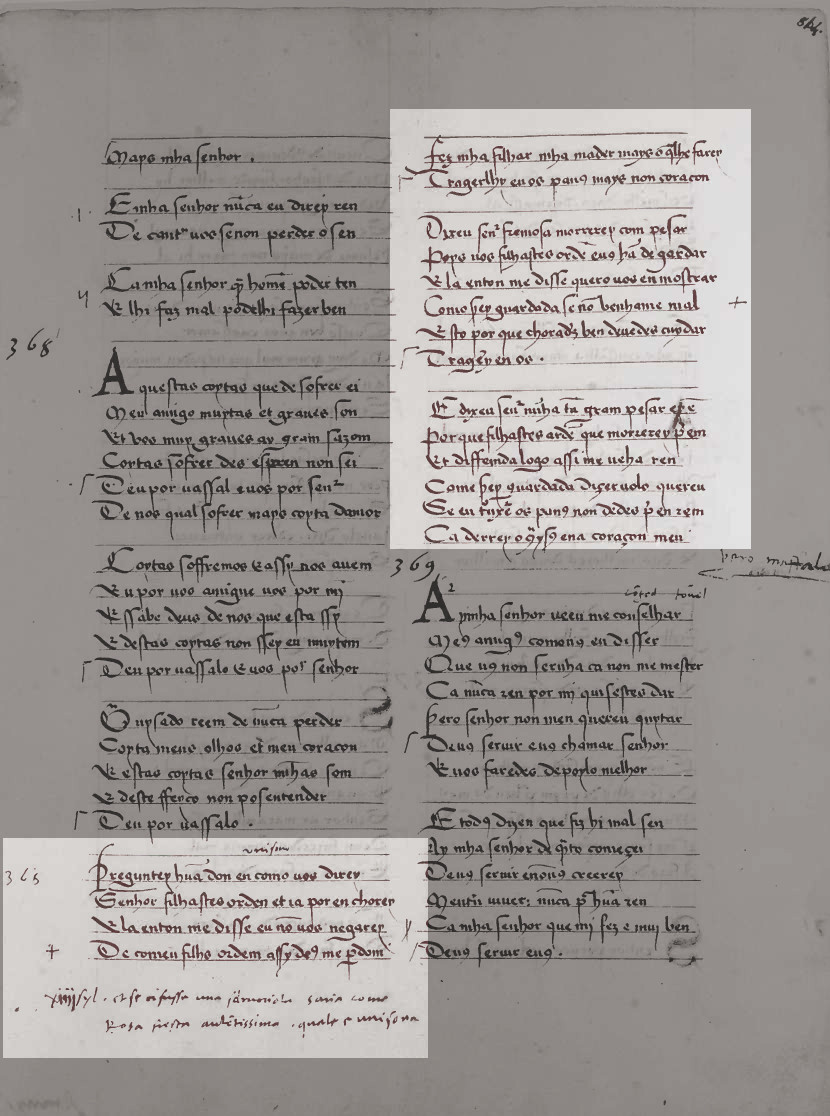 84.
Mays mha senhor .
E mha senhor nũca eu direy ren
De cantr̃ vos senon perder o sen
Ca mha senhor q̃ homẽ poder ten
Et lhi faz mal podelhi fazer ben
368
Aquestas coytas que de sofrer ei
Meu amigo muytas et graves son
Et vos muy graves ay gram sazom
Coytas sofrer des essen non sei
Deu por vassal e vos por sen̄r
De nos qual sofrer mays coyta damor
Coytas soffremos e assy nos auem
Eu por vos amigue vos por mi
Et ssabe deus de nos que esta ssy
Et destas coytas non ssey eu muytem
Deu por vassalo e vos por senhor
Guysado teem de nũca perder
Coyta meus olhos et meu coraçon
Et estas coytas senhor mĩhas som
Et deste ffeyto non posentender
Deu por vassalo .
unisson
Preguntey hũa don en como vos direy
Senhor filhastes orden et ia por en chorey
Et ela enton me disse eu nõ vos negarey
+ De comeu filhs ordem assy deꝯ me ꝑdom
xiiij syl . et se ci fusse una
Rosa fresta autẽtissima . quale e unisona
Fez mha filhar mha mader mays o q̃lhe farey
Tragerlhy eu os panꝯ mays non coraçon
Dixeu senr̃ fremosa morrerey com pesar
Poys vos filhastes ordẽ e vꝯ hã de gardar
Et ela enton me disse quero vos en mostrar
Como sey guardada se nõ venhame mal +
Esto por que choradꝫ ben deuedes cuydar
Trager eu os .
Et dixeu senr̃ mĩha tã gram pesar ey ẽ
Por que filhastes ordẽ que morrerey p̃ em
Et diffemda logo assi me ueha ren
Come sey guardada dizer uolo quereu
Se eu tr̃uxer os panꝯ non dedes p̃ en rem
Ca derrey o q̃yso en a coraçon meu
369
Ay mha senhor ueen me conselhar
Meꝯ amigꝯ comouꝯ eu disser
Que uꝯ non seruha ca non me mester
Ca nũca ren por mi quisestes dar
Pero senhor non men quereu quytar
Deuꝯ seruir e uꝯ chamar senhor
Et vos faredes depoylo melhor
E todꝯ dizen que fiz hi mal sen
Ay mha senhor de q̃to começei
Deuꝯ seruir e nonuꝯ creerey
Mentr̃ uiuer; nũca p̃ hũa ren
Ca mha senhor que mj fez e muj ben
Deuꝯ seruir e uꝯ .